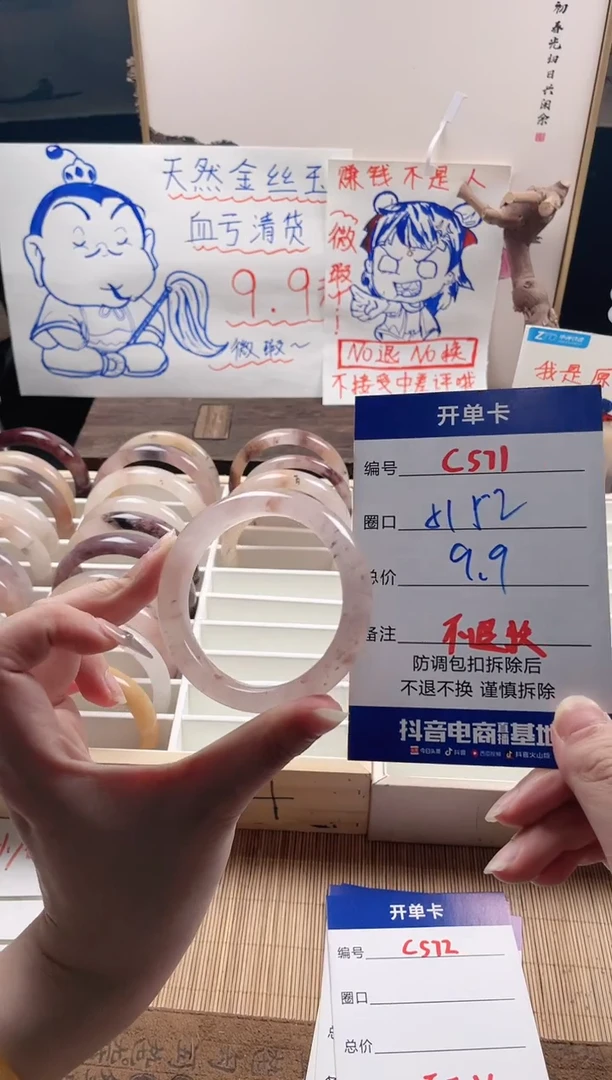 初春光旧日共闲余
天然金丝玉
血亏清货
9.9
微瑕~
赚钱不是人
微瑕
NO退 NO换
不接受中差评哦
我是
开单卡
编号 C571
圈口 52
总价 9.9
备注 不退换
防调包扣拆除后
不退不换 谨慎拆除
抖音电商直播基地
今日头条 抖音 西瓜视频 抖音火山版
开单卡
编号 C572
圈口
总价